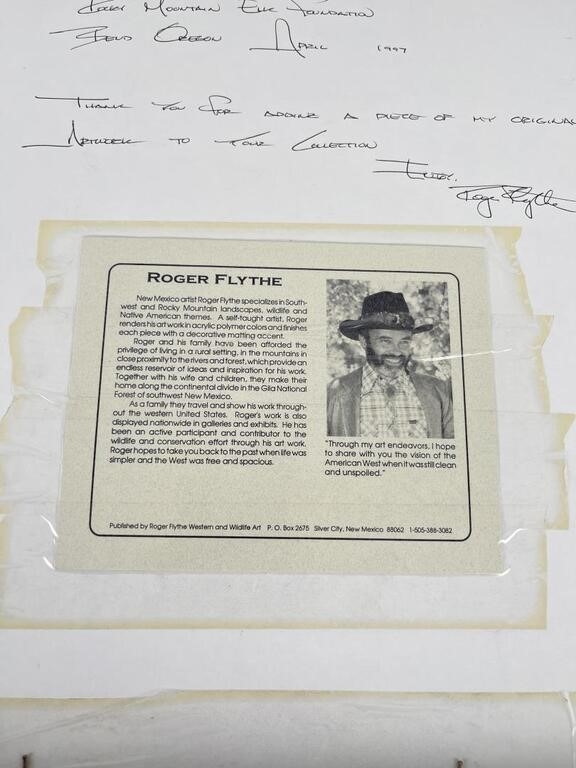 Rocky Mountain Elk Foundation
Bend Oregon April 1997
Thank You For adding a piece of my original
Artwork to Your Collection
Enjoy,
Roger Flythe
ROGER FLYTHE
New Mexico artist Roger Flythe specializes in South-
west and Rocky Mountain landscapes, wildlife and
Native American themes. A self-taught artist, Roger
renders his art work in acrylic polymer colors and finishes
each piece with a decorative matting accent.
Roger and his family have been afforded the
privilege of living in a rural setting, in the mountains in
close proximity to the rivers and forest, which provide an
endless reservoir of ideas and inspiration for his work.
Together with his wife and children, they make their
home along the continental divide in the Gila National
Forest of southwest New Mexico.
As a family they travel and show his work through-
out the western United States. Roger's work is also
displayed nationwide in galleries and exhibits. He has
been an active participant and contributor to the
wildlife and conservation effort through his art work.
Roger hopes to take you back to the past when life was
simpler and the West was free and spacious.
"Through my art endeavors, I hope
to share with you the vision of the
American West when it was still clean
and unspoiled."
Published by Roger Flythe Western and Wildlife Art P. O. Box 2675 Silver City, New Mexico 88062 1-505-388-3082